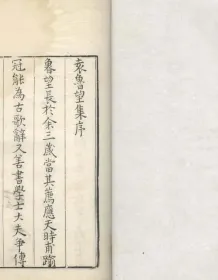 袁魯望集序
魯望長於余三歲當其薦應天時甫踰
冠能為古歌辭又善書學士大夫爭傳